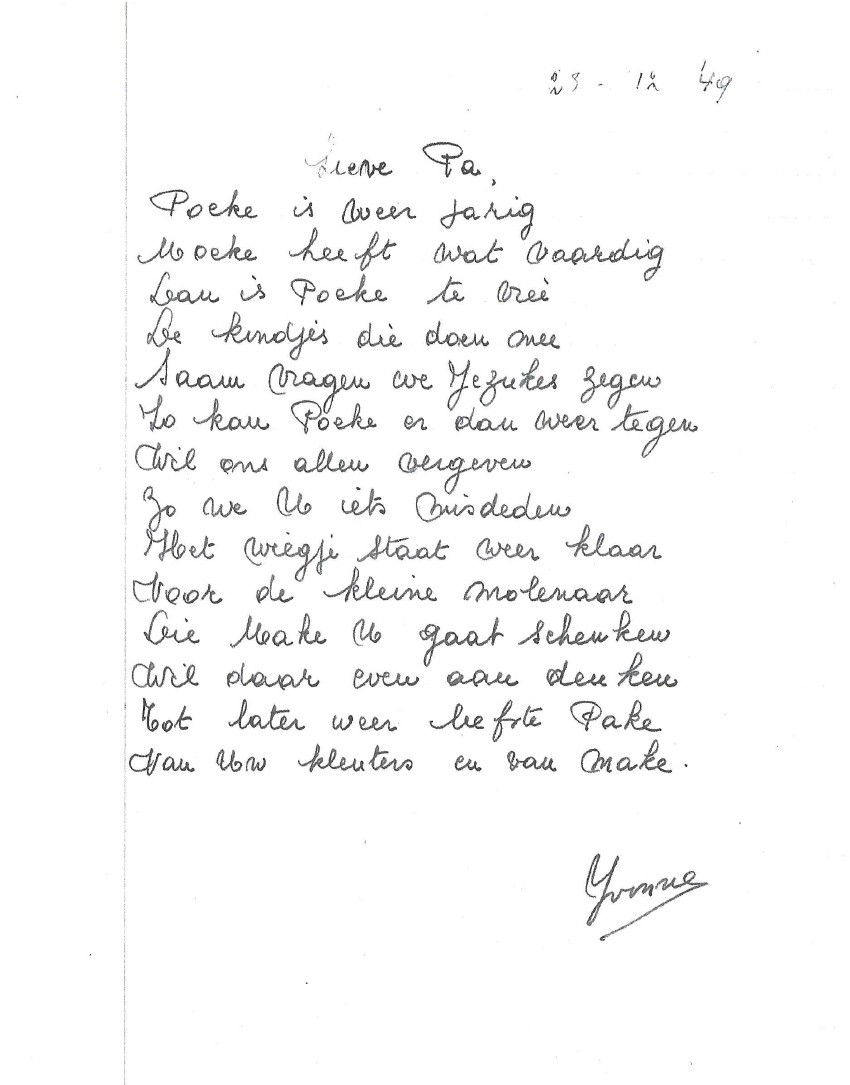 23 - 12 '49
Lieve Pa,
Poeke is weer jarig
Moeke heeft wat vaardig
Dan is Poeke te vreê
De kindjes die doen mee
Saam vragen we Jezukes zegen
Zo kan Poeke er dan weer tegen
Wil ons allen vergeven
Zo we U iets misdeden
Het wiegje staat weer klaar
Voor de kleine molenaar
Die Make U gaat schenken
Wil daar even aan denken
Tot later weer liefste Pake
Van Uw kleuters en van Make.
Yvonne